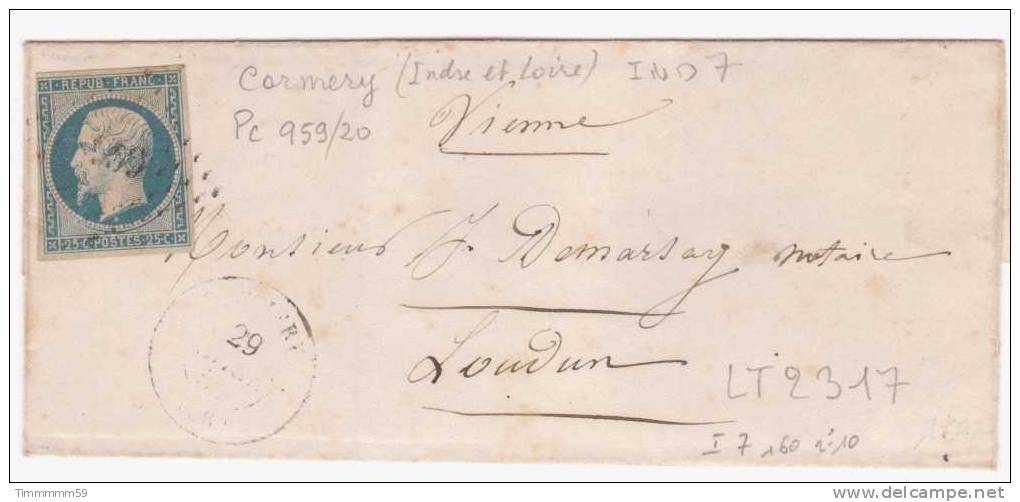 REPUB·FRANC·
25·C·POSTES·25·C·
Cormery (Indre et Loire) IND 7
Pc 959/20
Vienne
Monsieur J. Demarsay notaire
29
Loudun
LT2317
I 7
Timmmmm59
www.delcampe.net